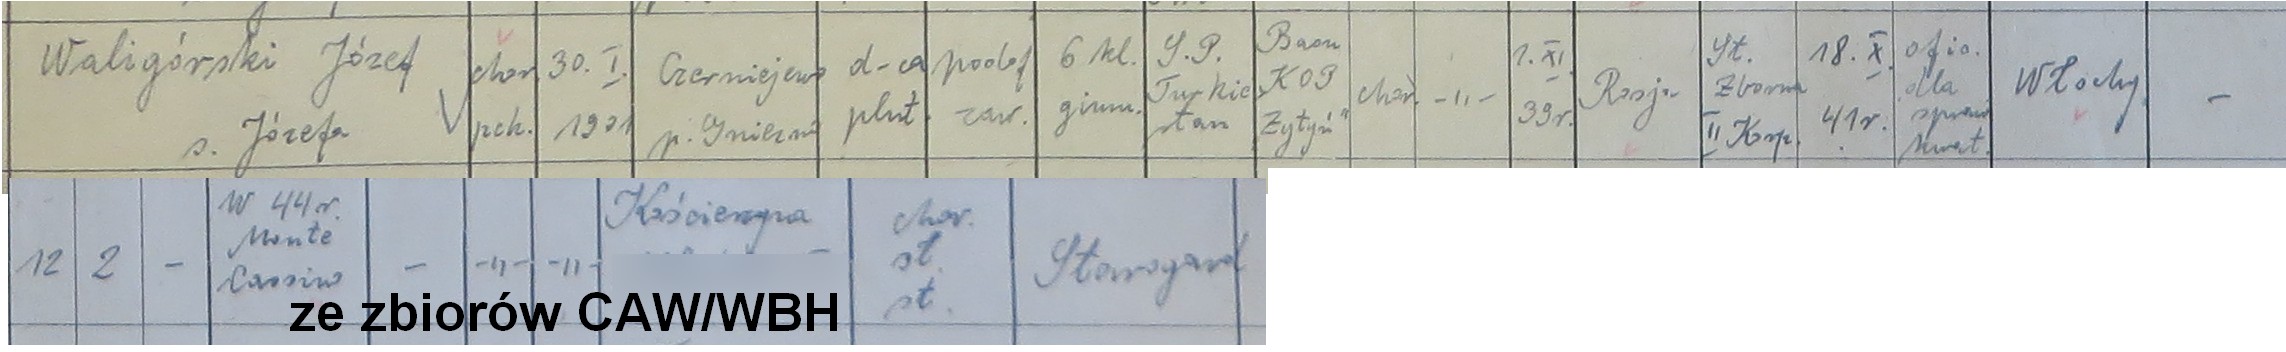 Waligórski Józef
s. Józefa
chor.
pch.
30. I.
1901
Czerniejewo
p. Gniezno
d-ca
plut.
podof
zaw.
6 kl.
gimn.
S.P.
Turkie
stan
Baon
KOP
Żytyń"
chor.
-„-
1. XI.
39r.
Rosja
St.
Zborna
II Korp.
18. X.
41r.
ofic.
dla
spraw
kwat.
Włochy
-
12
2
-
W 44r.
Monte
Cassino
-
-„-
-„-
Kościerzyna
chor.
st.
st.
Starogard
ze zbiorów CAW/WBH